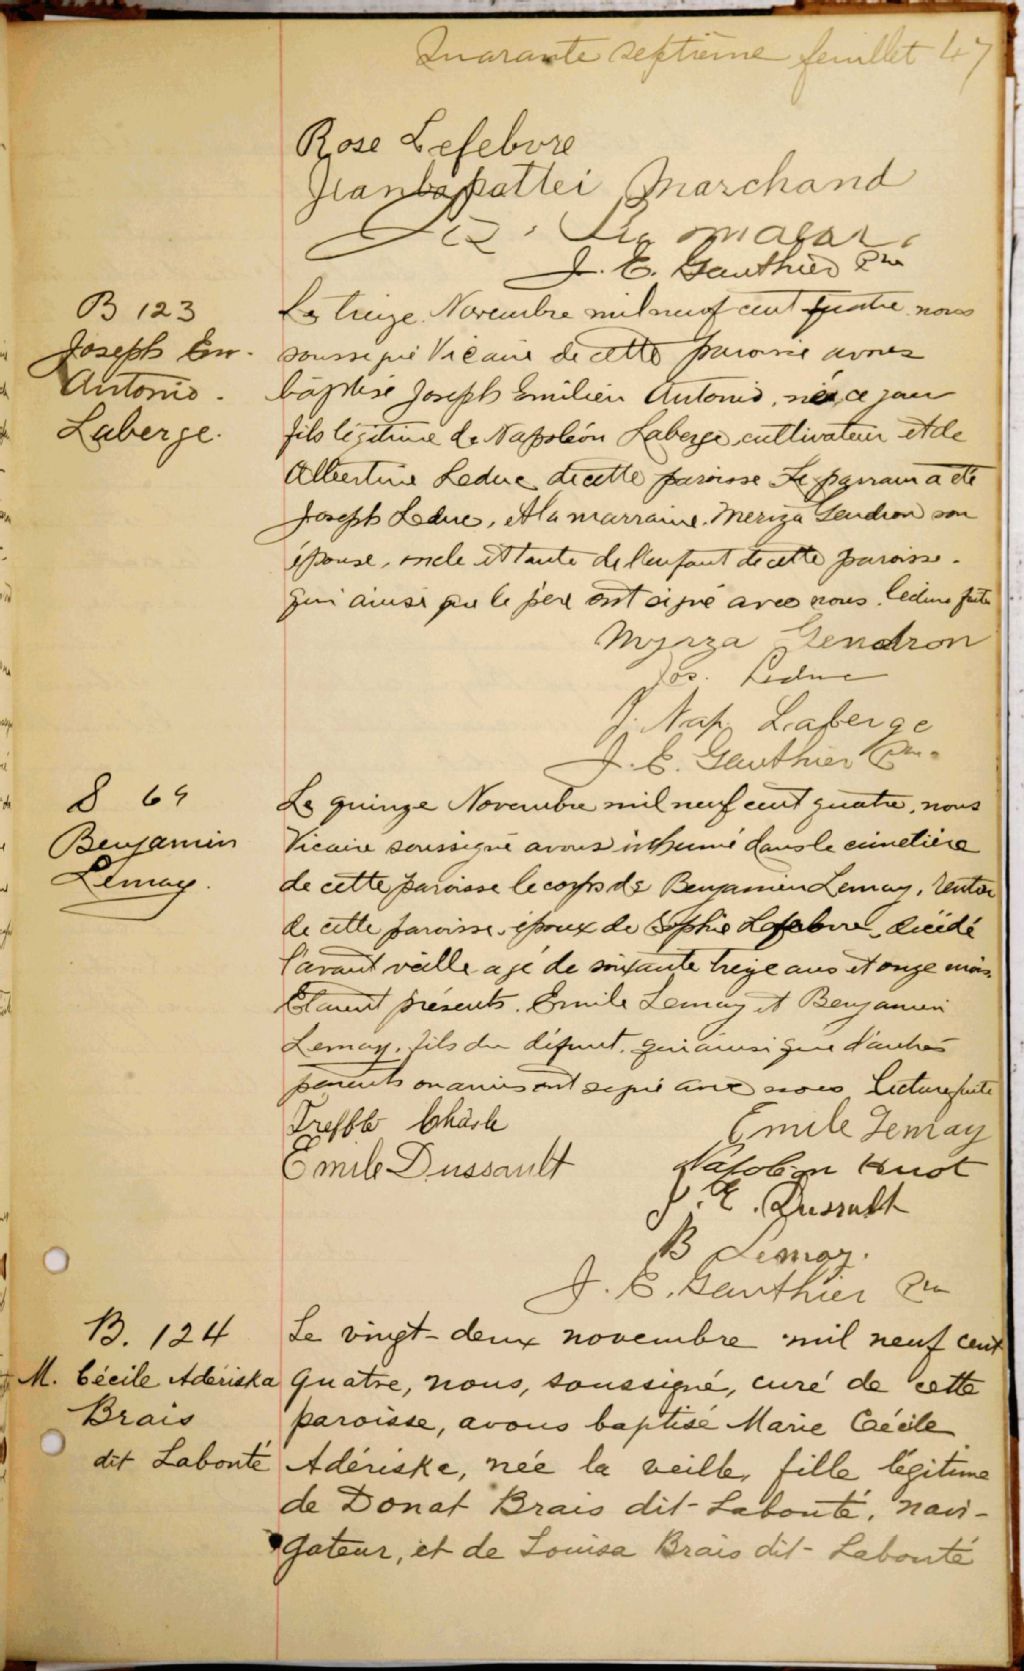 Quarante septième feuillet 47
Rose Lefebvre
Marchand
J. E. Gauthier Ptre
B 123
Joseph Em.
Antonio.
Laberge.
Le treize Novembre mil neuf cent quatre nous
soussigné Vicaire de cette paroisse avons
baptisé Joseph Emilien Antonio, né ce jour
fils légitime de Napoléon Laberge cultivateur et de
Albertine Leduc de cette paroisse Le parrain a été
Joseph Leduc, et la marraine Meriza Gendron son
épouse, oncle et tante de l'enfant de cette paroisse.
qui ainsi que le père ont signé avec nous. lecture faite
Myrza Gendron
Jos. Leduc
J. Nap. Laberge
J. E. Gauthier Ptre
S 64
Benjamin
Lemay.
Le quinze Novembre mil neuf cent quatre, nous
Vicaire soussigné avons inhumé dans le cimetière
de cette paroisse le corps de Benjamin Lemay, rentier
de cette paroisse, époux de Sophie Lefebvre, décédé
l'avant veille agé de soixante treize ans et onze mois.
Etaient présents. Emile Lemay et Benjamin
Lemay, fils du défunt, qui ainsi que d'autres
parents ou amis ont signé avec nous lecture faite
Trefflé
Emile Lemay
Emile Dussault
Napoléon Huot
J. E. Dussault
B Lemay.
J. E. Gauthier Ptre
B. 124
M. Cécile Adériska
Brais
dit Labonté
Le vingt-deux novembre mil neuf cent
quatre, nous, soussigné, curé de cette
paroisse, avons baptisé Marie Cécile
Adériska, née la veille, fille légitime
de Donat Brais dit-Labonté, navi-
gateur, et de Louisa Brais dit-Labonté